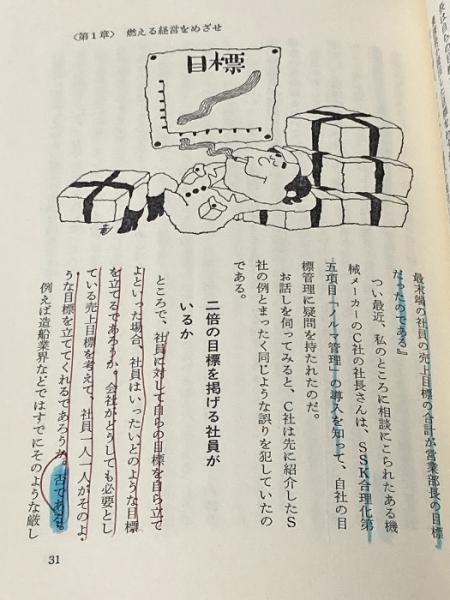 〈第1章〉 燃える経営をめざせ
目標
最末端の社員の売上目標の合計が営業部長の目標
だったのである』
つい最近、私のところに相談にこられたある機
械メーカーのC社の社長さんは、SSK合理化第
五項目「ノルマ管理」の導入を知って、自社の目
標管理に疑問を持たれたのだ。
お話しを伺ってみると、C社は先に紹介したS
社の例とまったく同じような誤りを犯していたの
である。
二倍の目標を掲げる社員が
いるか
ところで、社員に対して自らの目標を自ら立て
よといった場合、社員はいったいどのような目標
を立てるであろうか。会社がどうしても必要とし
ている売上目標を考えて、社員一人一人がそのよ
うな目標を立ててくれるであろうか。否である。
例えば造船業界などではすでにそのような厳し
31